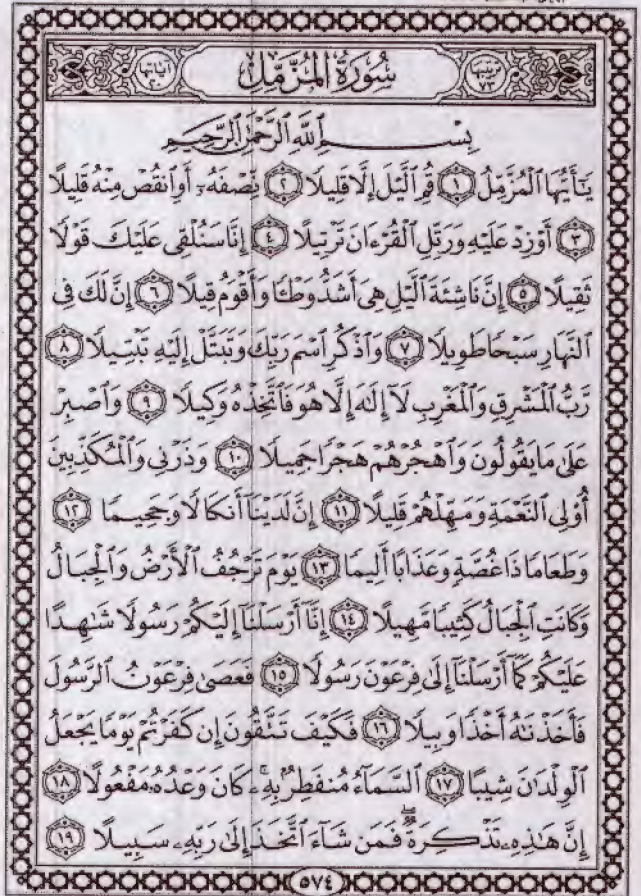 ترتيبها ٧٣ سُورَةُ المُزَّمِّل آياتها ٢٠
بِسْمِ ٱللَّهِ ٱلرَّحْمَٰنِ ٱلرَّحِيمِ
يَٰٓأَيُّهَا ٱلْمُزَّمِّلُ ١ قُمِ ٱلَّيْلَ إِلَّا قَلِيلًا ٢ نِّصْفَهُۥٓ أَوِ ٱنقُصْ مِنْهُ قَلِيلًا
٣ أَوْ زِدْ عَلَيْهِ وَرَتِّلِ ٱلْقُرْءَانَ تَرْتِيلًا ٤ إِنَّا سَنُلْقِى عَلَيْكَ قَوْلًا
ثَقِيلًا ٥ إِنَّ نَاشِئَةَ ٱلَّيْلِ هِىَ أَشَدُّ وَطْـًٔا وَأَقْوَمُ قِيلًا ٦ إِنَّ لَكَ فِى
ٱلنَّهَارِ سَبْحًا طَوِيلًا ٧ وَٱذْكُرِ ٱسْمَ رَبِّكَ وَتَبَتَّلْ إِلَيْهِ تَبْتِيلًا ٨
رَّبُّ ٱلْمَشْرِقِ وَٱلْمَغْرِبِ لَآ إِلَٰهَ إِلَّا هُوَ فَٱتَّخِذْهُ وَكِيلًا ٩ وَٱصْبِرْ
عَلَىٰ مَا يَقُولُونَ وَٱهْجُرْهُمْ هَجْرًا جَمِيلًا ١٠ وَذَرْنِى وَٱلْمُكَذِّبِينَ
أُو۟لِى ٱلنَّعْمَةِ وَمَهِّلْهُمْ قَلِيلًا ١١ إِنَّ لَدَيْنَآ أَنكَالًا وَجَحِيمًا ١٢
وَطَعَامًا ذَا غُصَّةٍ وَعَذَابًا أَلِيمًا ١٣ يَوْمَ تَرْجُفُ ٱلْأَرْضُ وَٱلْجِبَالُ
وَكَانَتِ ٱلْجِبَالُ كَثِيبًا مَّهِيلًا ١٤ إِنَّآ أَرْسَلْنَآ إِلَيْكُمْ رَسُولًا شَٰهِدًا
عَلَيْكُمْ كَمَآ أَرْسَلْنَآ إِلَىٰ فِرْعَوْنَ رَسُولًا ١٥ فَعَصَىٰ فِرْعَوْنُ ٱلرَّسُولَ
فَأَخَذْنَٰهُ أَخْذًا وَبِيلًا ١٦ فَكَيْفَ تَتَّقُونَ إِن كَفَرْتُمْ يَوْمًا يَجْعَلُ
ٱلْوِلْدَٰنَ شِيبًا ١٧ ٱلسَّمَآءُ مُنفَطِرٌۢ بِهِۦ ۚ كَانَ وَعْدُهُۥ مَفْعُولًا ١٨
إِنَّ هَٰذِهِۦ تَذْكِرَةٌ ۖ فَمَن شَآءَ ٱتَّخَذَ إِلَىٰ رَبِّهِۦ سَبِيلًا ١٩
٥٧٤